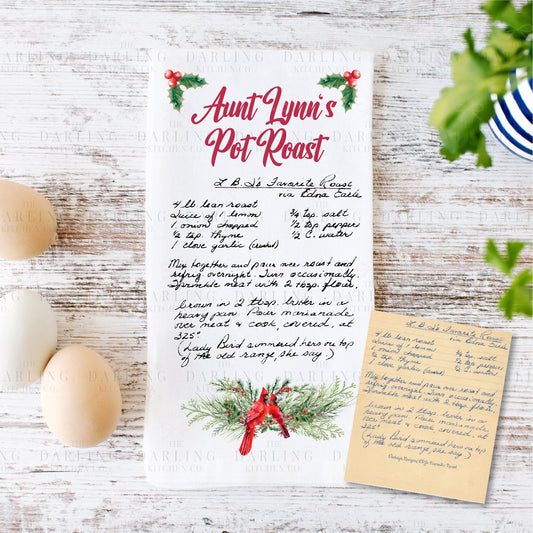 Aunt Lynn's
Pot Roast
L B J's Favorite Roast
via Edna Earle
4 lb lean roast
Juice of 1 lemon
1 onion chopped
½ tsp. thyme
1 clove garlic (crushed)
¾ tsp. salt
½ tsp pepper
½ C. water
Mix together and pour over roast and
refrig overnight. Turn occasionally.
Sprinkle meat with 2 tbsp. flour.
Brown in 2 tbsp. butter in a
heavy pan. Pour marianade
over meat & cook, covered, at
325°
(Lady Bird simmered hers on top
of the old range, she say.)
THE
DARLING
KITCHEN CO.
L B J's Favorite Roast
via Edna Earle
4 lb lean roast
Juice of 1 lemon
1 onion chopped
½ tsp. thyme
1 clove garlic (crushed)
¾ tsp. salt
½ tsp pepper
½ C. water
Mix together and pour over roast and
refrig overnight. Turn occasionally.
Sprinkle meat with 2 tbsp. flour.
Brown in 2 tbsp. butter in a
heavy pan. Pour marianade
over meat & cook, covered, at
325°
(Lady Bird simmered hers on top
of the old range, she say.)